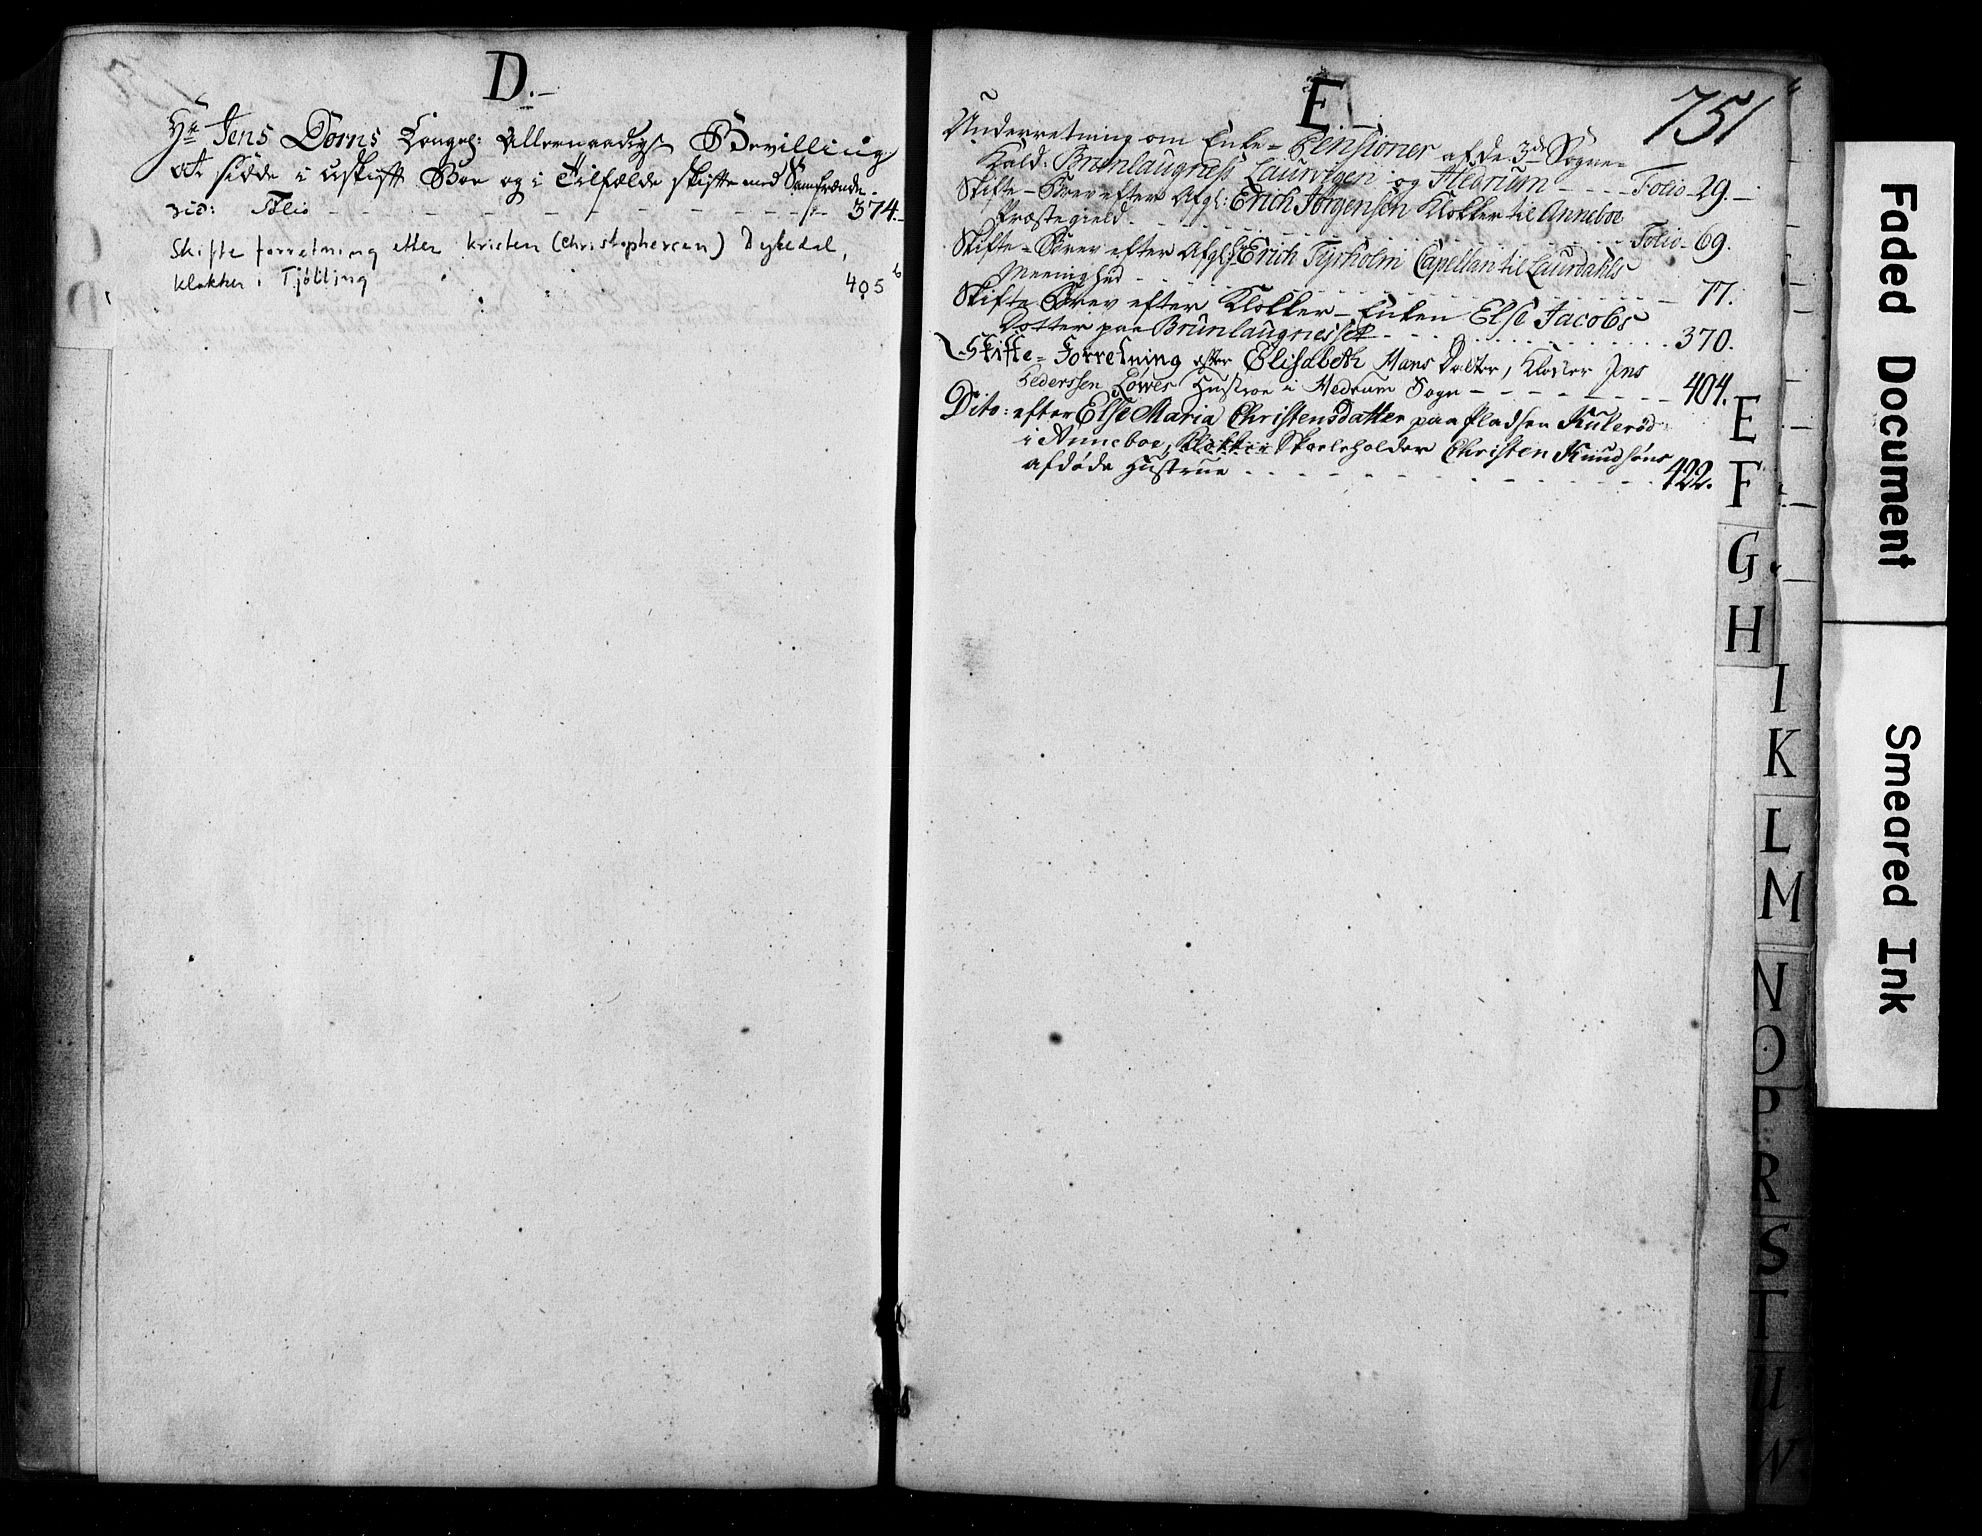 D.
Hr Jens Dorns Kongel: Allernaadigst Bevilling
at sidde i uskifft Boe og i Tilfælde skiffte med Samfrænde-
Folio 374.
Skifte forretning etter Kristen (Christophersen) Dykedal,
klokker i Tjølling 405 b
E.
751
Underretning om Enke-Pensioner af de 3de Sogne-
Kald: Brunlaugness Laurvigen og Hedrum Folio 29.
Skifte-Brev efter Afgl: Erich Jörgensön Klokker til Anneboe
Præstegield Folio 69.
Skifte-Brev efter Afgl: Hr Erich Tyrholm Capellan til Laurdahls
Meenighed 77.
Skifte Brev efter Klokker-Enken Else Jacobs
Dotter paa Brunlaugnesset 370.
Skifte-Forretning efter Elisabeth Hans Datter, Klokker Jens
Pederssen Löwes Hustroe i Hedrum Sogn 404.
Dito: efter Else Maria Christensdatter paa Pladsen Kuleröd
i Anneboe, Klokker Skoeleholder Christen Knudsöns
afdöde Hustrue 422.
E
F
G
H
I
K
L
M
N
O
P
R
S
T
U
W
Faded Document
Smeared Ink